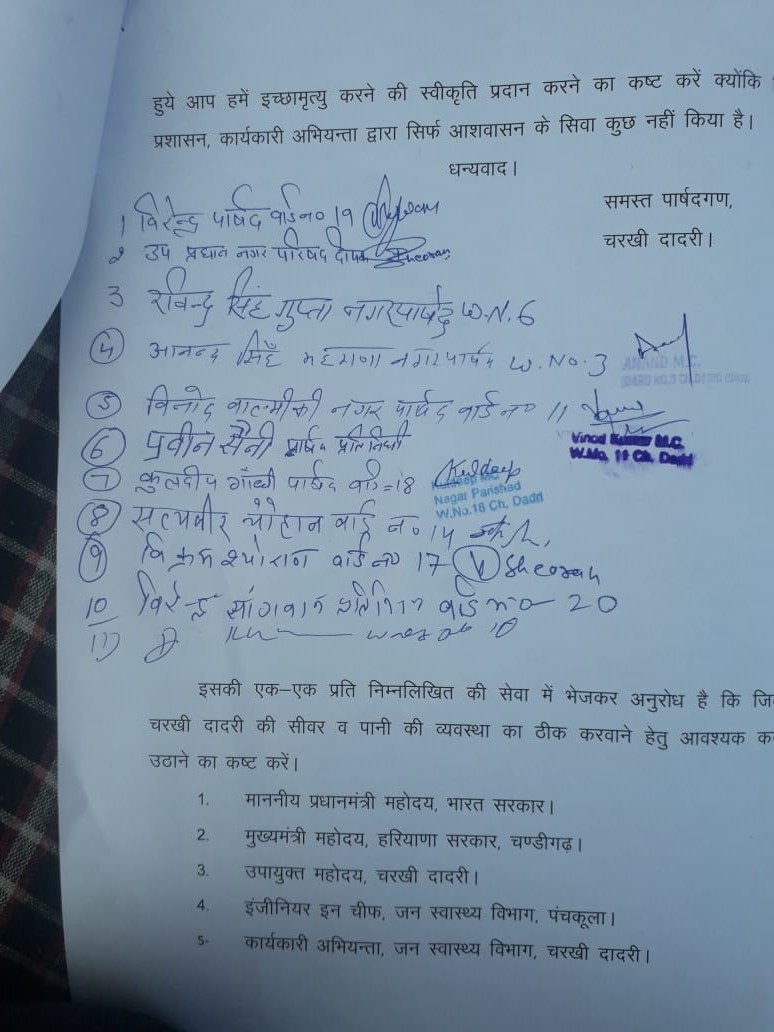 हुये आप हमें इच्छामृत्यु करने की स्वीकृति प्रदान करने का कष्ट करें क्योंकि
प्रशासन, कार्यकारी अभियन्ता द्वारा सिर्फ आशवासन के सिवा कुछ नहीं किया है।
धन्यवाद।
समस्त पार्षदगण,
चरखी दादरी।
1 विरेन्द्र पार्षद वार्ड न० 19
2 उप प्रधान नगर परिषद दीपक Sheoran
3 रविन्द्र सिंह गुप्ता नगरपार्षद W.N.6
4 आनन्द सिंह महराणा नगर पार्षद W.No.3
ANAND M.C.
5 विनोद वाल्मीकी नगर पार्षद वार्ड न० 11
Vinod Kumar M.C.
W.No. 11 Ch. Dadri
6 प्रवीन सैनी पार्षद प्रतिनिधी
7 कुलदीप गाँधी पार्षद वार्ड=18 Kuldeep
Kuldeep MC
Nagar Parishad
W.No.18 Ch. Dadri
8 सत्यवीर चौहान वार्ड न० 14
9 विक्रम श्योराण वार्ड न० 17 V Sheoran
10 विरेन्द्र सांगवान प्रतिनिधि वार्ड न० 20
11)
इसकी एक–एक प्रति निम्नलिखित की सेवा में भेजकर अनुरोध है कि
चरखी दादरी की सीवर व पानी की व्यवस्था का ठीक करवाने हेतु आवश्यक
उठाने का कष्ट करें।
1. माननीय प्रधानमंत्री महोदय, भारत सरकार।
2. मुख्यमंत्री महोदय, हरियाणा सरकार, चण्डीगढ़।
3. उपायुक्त महोदय, चरखी दादरी।
4. इंजीनियर इन चीफ, जन स्वास्थ्य विभाग, पंचकूला।
5- कार्यकारी अभियन्ता, जन स्वास्थ्य विभाग, चरखी दादरी।